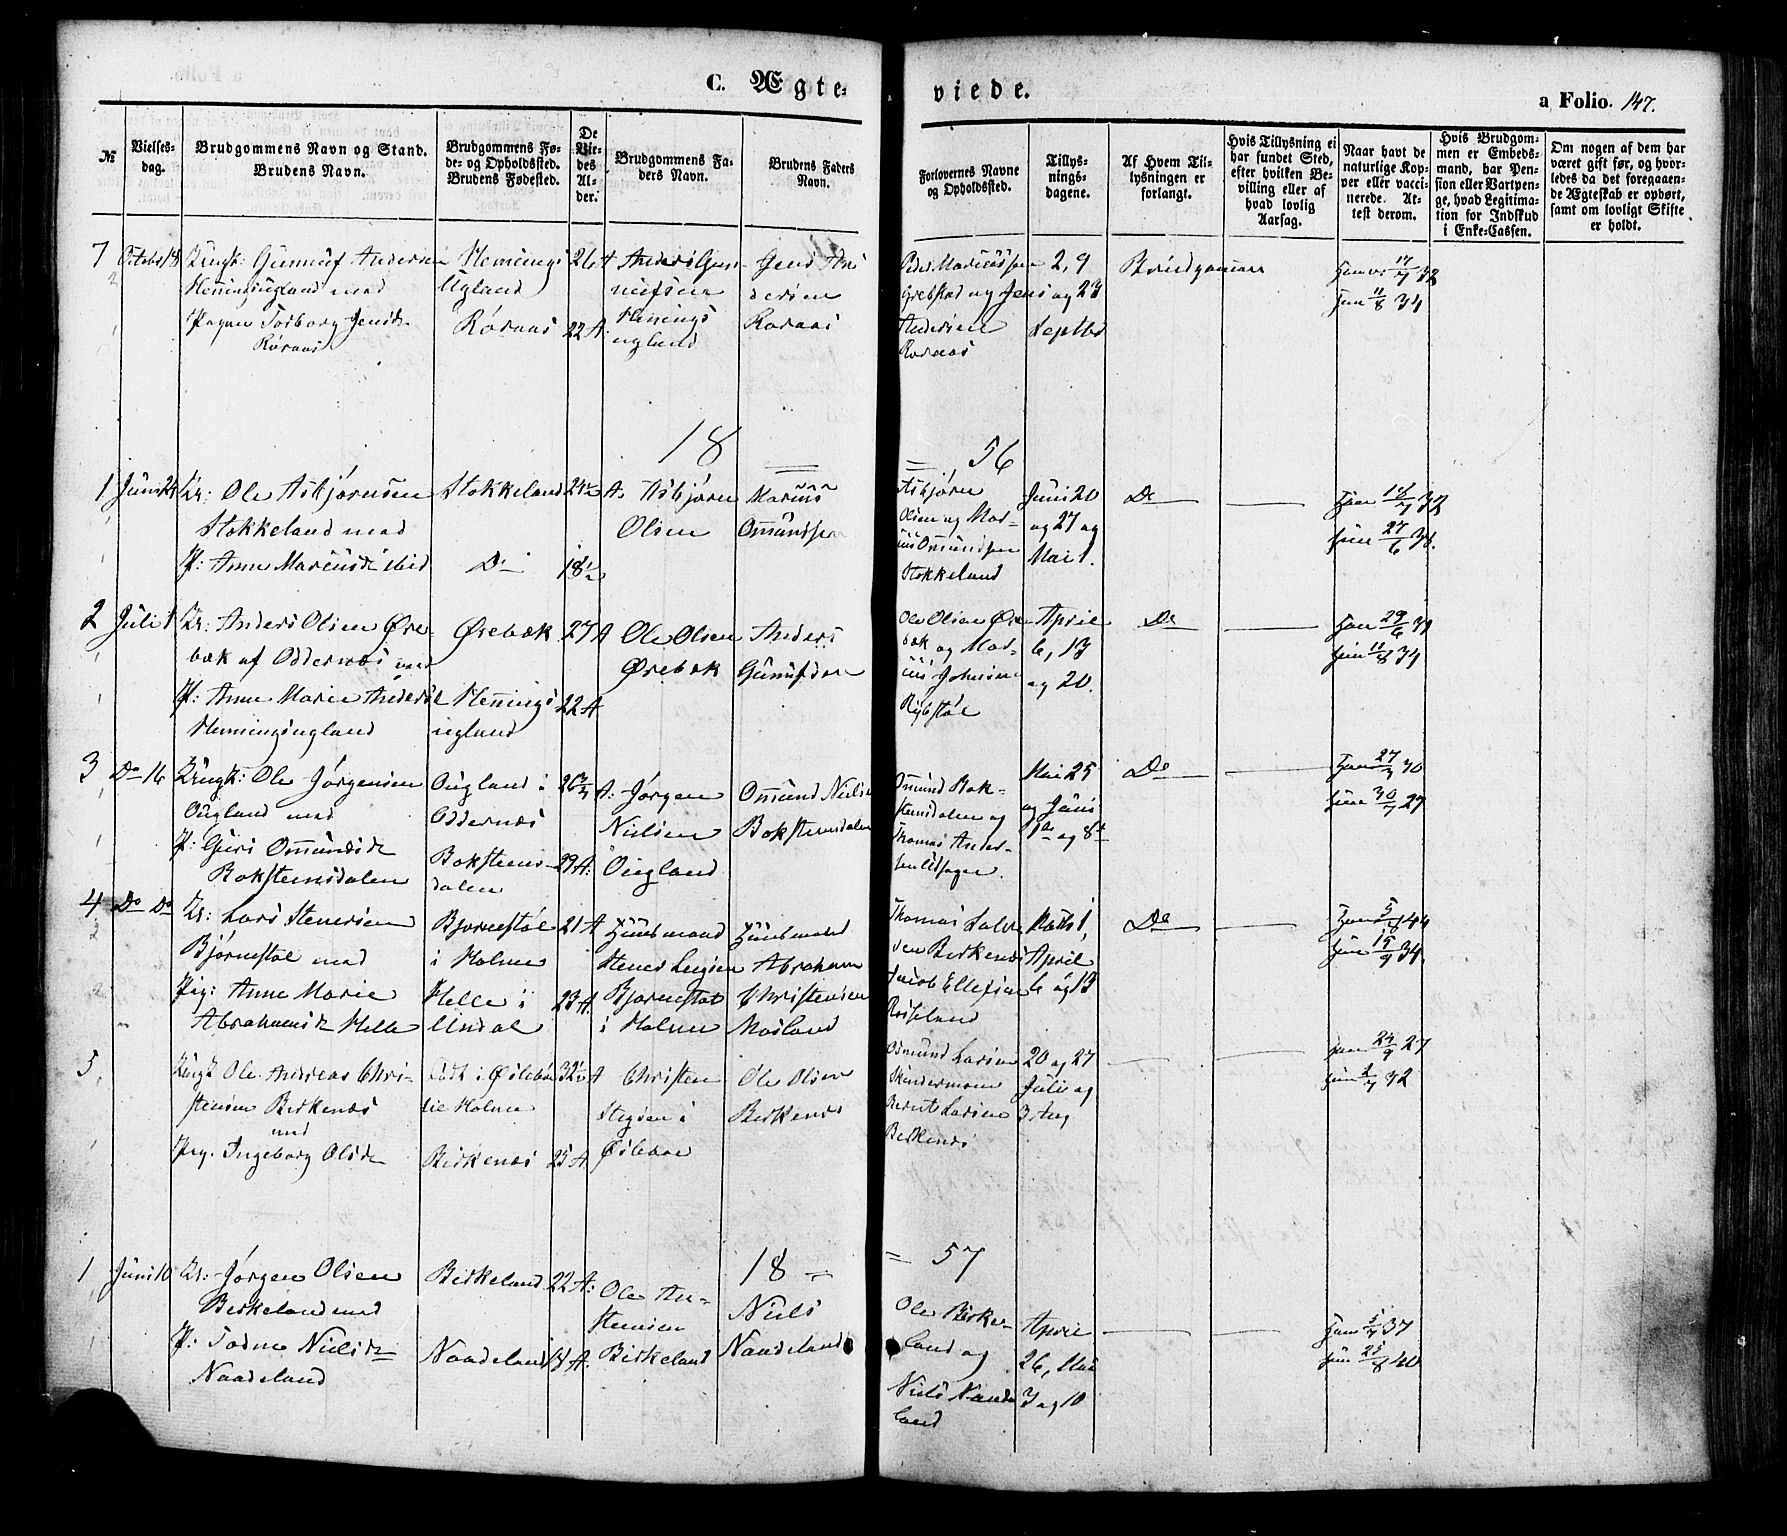 C. Ægte-
viede.
a Folio. 147.
№
Vielses-
dag.
Brudgommens Navn og Stand.
Brudens Navn.
Brudgommens Fø-
de- og Opholdssted.
Brudens Fødested.
De
Vie-
des
Al-
der.
Brudgommens Fa-
ders Navn.
Brudens Faders
Navn.
Forlovernes Navne
og Opholdssted.
Tillys-
nings-
dagene.
Af Hvem Til-
lysningen er
forlangt.
Hvis Tillysning ei
har fundet Sted,
efter hvilken Be-
villing eller af
hvad lovlig
Aarsag.
Naar havt de
naturlige Kop-
per eller vacci-
nerede. At-
test derom.
Hvis Brudgom-
men er Embeds-
mand, har Pen-
sion eller Vartpen-
ge, hvad Legitima-
tion for Indskud
i Enke-Cassen.
Om nogen af dem har
været gift før, og hvor-
ledes da det foregaaen-
de Ægteskab er ophørt,
samt om lovligt Skifte
er holdt.
7 October 18 Ungk: Gunnuf Andersen
Hemingsugland med
Pigen Torborg Jensdr
Røraas
Hemings
Ugland
Røraas
26 A
22 A.
Anders Gun-
nufsen
Hemings
ugland
Jens An-
dersen
Roraas
Peder Mariussen
Grebstad og Jens
Andersen
Roraas
2, 9
og 23
Septbr
Brudgommen
Ham 17/7 32
Hun 11/8 34
18
56
1 Juni 24 Ole Asbjørnsen
Stokkeland med
P: Anne Mariusdr ibid
Stokkeland
Do
24 1/2 A.
18 1/2
Asbjørn
Olsen
Marius
Omundsen
Asbjørn
Olsen og Mar-
ius Omundsen
Stokkeland
Juni 20
og 27 og
Mai 1.
Do
Ham
Hun 27/6 38.
2 Juli 1 Anders Olsen Øre-
bæk af Oddernæs med
P: Anne Marie Andersd
Hemingsugland
Ørebæk
Hemings
ugland
27 A
22 A
Ole Olsen
Ørebæk
Anders
Gunufsen
Ole Olsen Øre
bæk og Mar-
ius Johnsen
Rybstøl
April
6, 13
og 20.
Do
Ham 29/6 31
Hun 11/8 34
3 Do 16 Ungk: Ole Jørgensen
Ougland med
P: Guri Omundsdr
Boksteinsdalen
Ougland i
Oddernæs
Boksteins-
dalen
26 3/4 A.
29 A.
Jørgen
Nielsen
Ougland
Omund Nielsen
Boksteinsdalen
Omund Bok-
steinsdalen og
Thomas Ander-
sen
Mai 25
og Juni
1te og 8de
Do
Ham 27/7 30
Hun 30/7 29
4 Do Do Lars Stenersen
Bjørnestøl med
Pig: Anne Marie
Abrahamsdr Helle
Bjørnestøl
i Holme
Helle i
Undal
21 A
23 A.
Huusmand
Stener
Bjørnestøl
i Holme
Huusmand
Abraham
Christensen
Mosland
Thomas
Birkenæs
Jacob Ellefsen
Røiseland
April
6 og 13
Do
Ham
Hun 15/9 34.
5 Ungk Ole Andreas Chri-
stensen Birkenæs
med
Pig. Ingeborg Olsdr
Født i Øslebø
til Holme
Birkenæs
32 1/2 A
25 A
Christen
i
Øslebøe
Ole Olsen
Birkenæs
Osmund Larsen
Bernt Larsen
Birkenæs
20 og 27
Juli og
3 Aug
Ham 24/9 27
Hun 2/7 32
18
57
1 Juni 10 Jørgen Olsen
Birkeland med
P: Todne Nielsdr
Naadeland
Birkeland
Naadeland
22 A:
18 A.
Ole An-
stensen
Birkeland
Niels
Naadeland
Ole Birke-
land og
Niels Naade
land
April
26, Mai
3 og 10
Ham 5/7 37
Hun 25/8 40